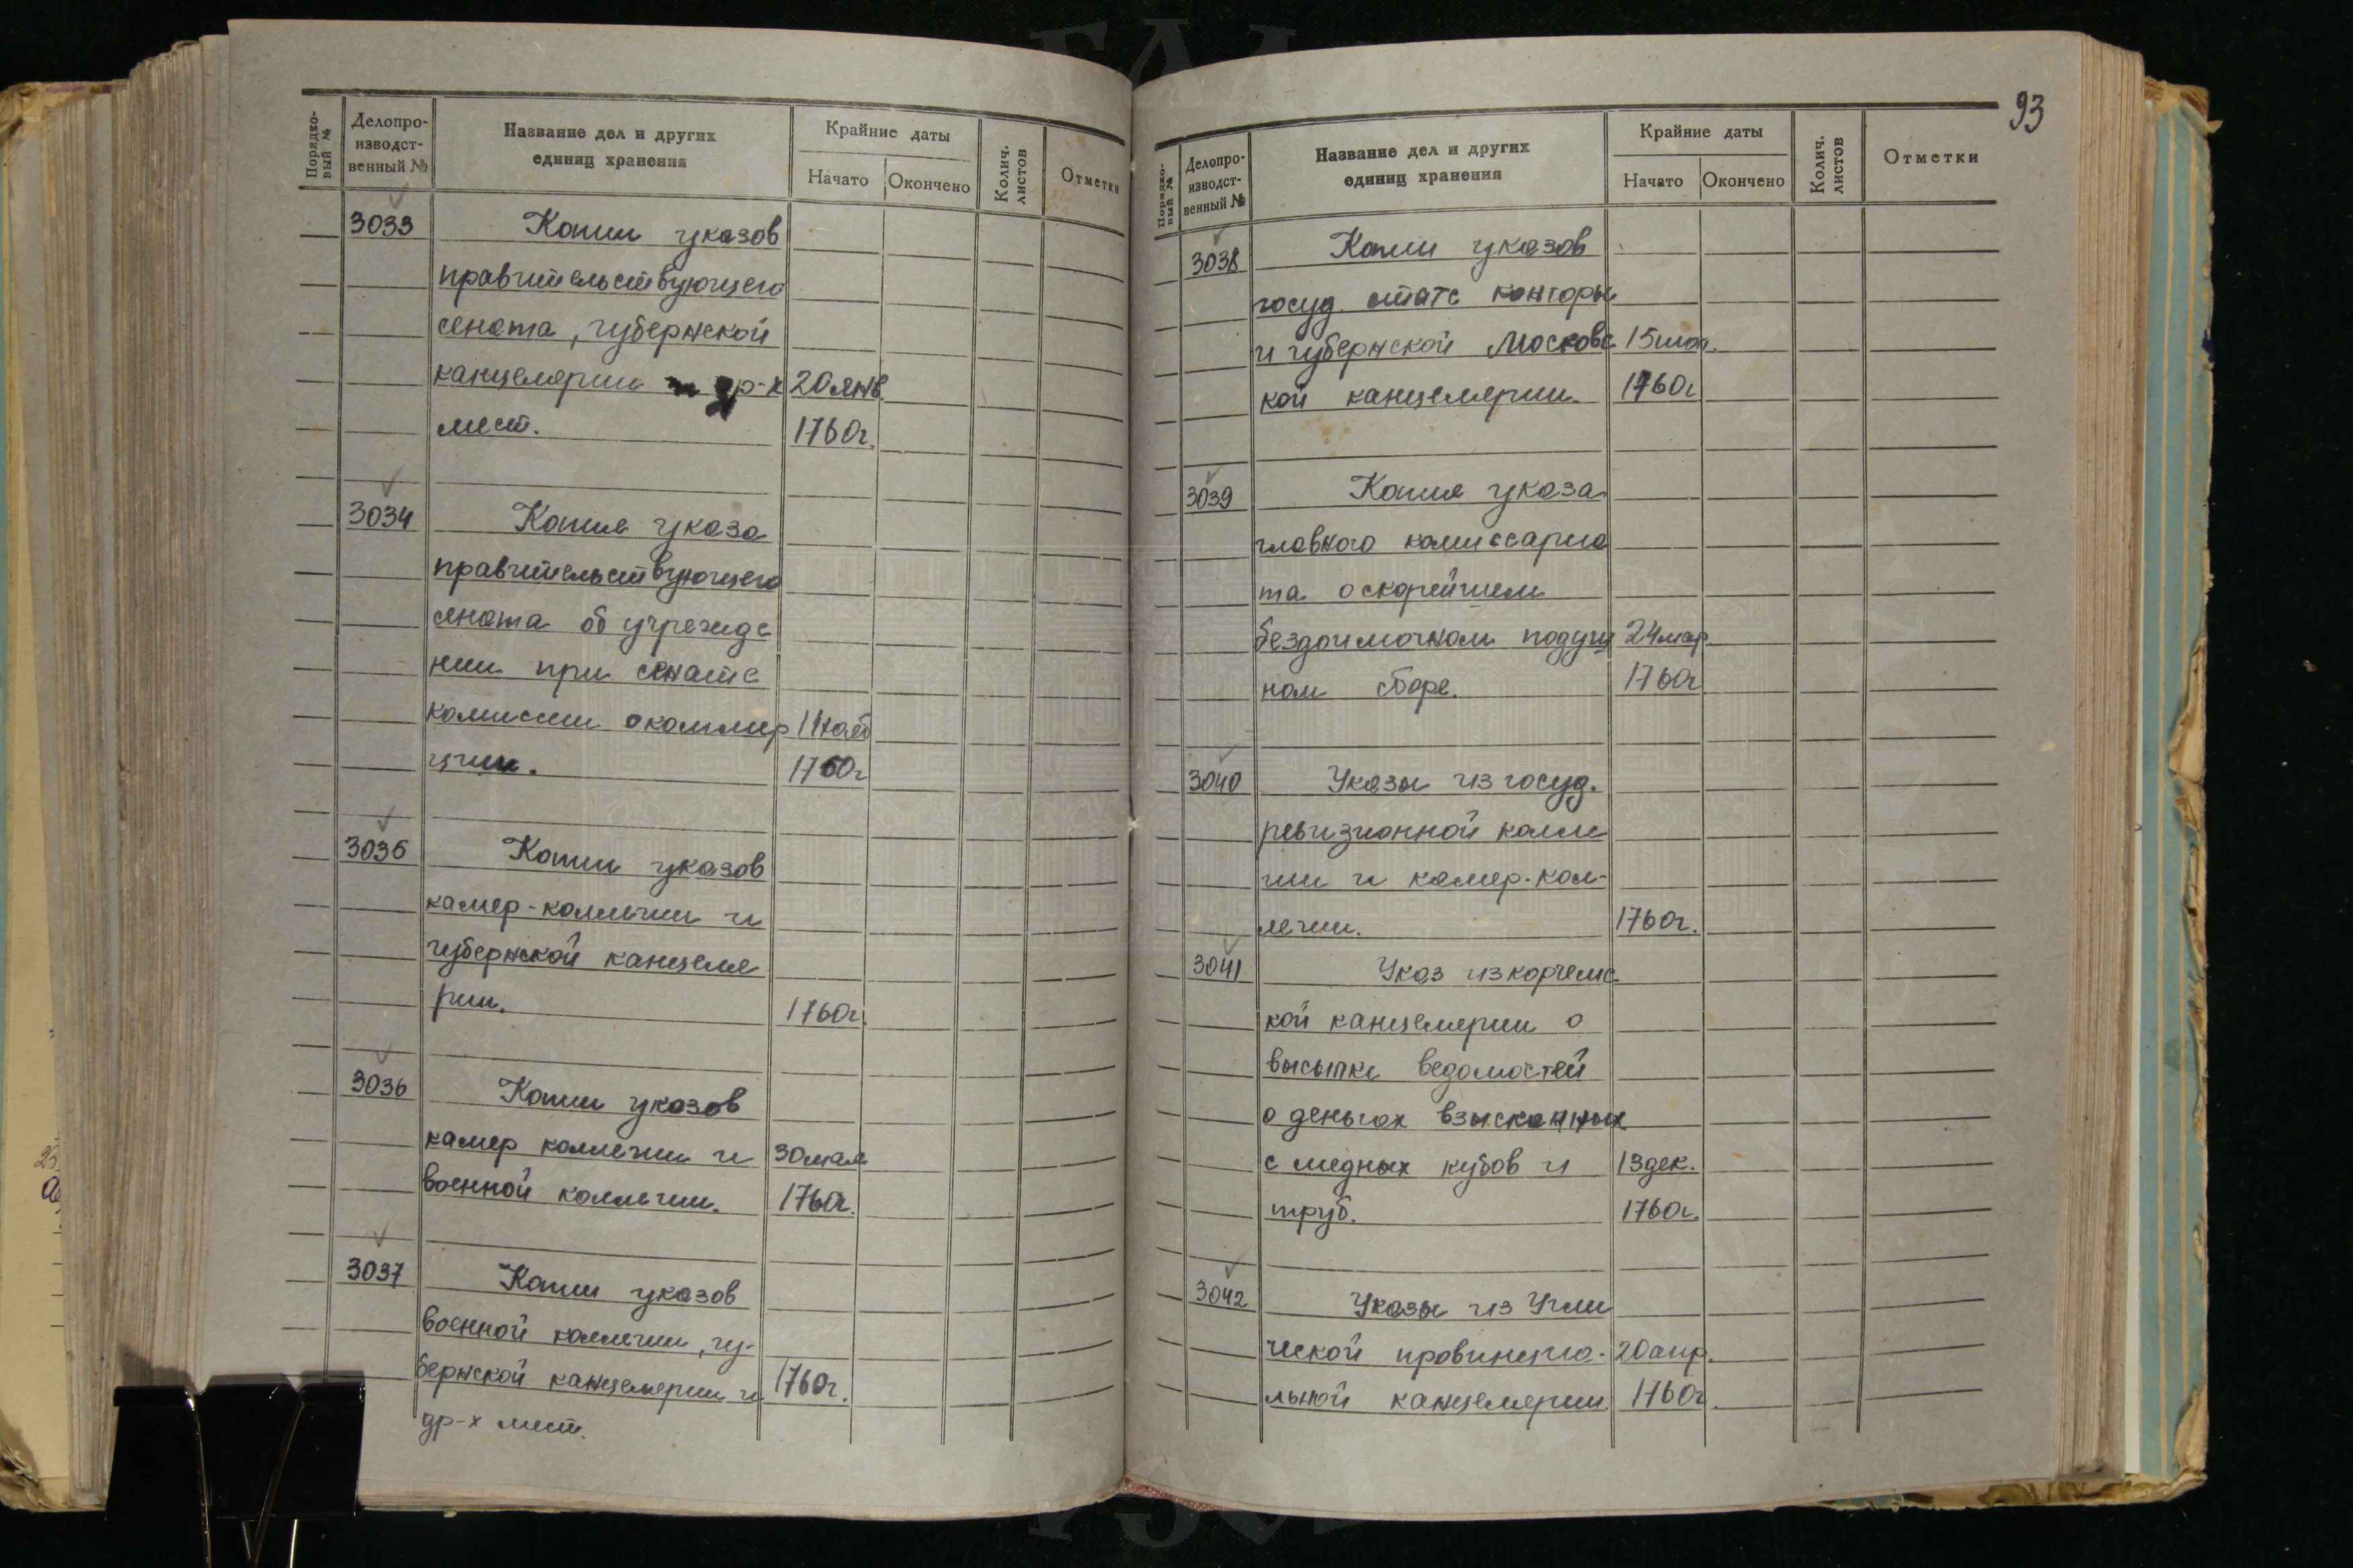 Порядко-
вый №
Делопро-
изводст-
венный №
Название дел и других
единиц хранения
Крайние даты
Начато
Окончено
Колич.
листов
Отметки
3033
Копии указов
правительствующего
сената, губернской
канцелярии и др-х 20 янв.
мест. 1760г.
3034
Копия указа
правительствующего
сената об учрежде
нии при сенате
комиссии о коммер 11 нояб
ции. 1760г
3035
Копии указов
камер-коллегии и
губернской канцеля
рии. 1760г.
3036
Копии указов
камер коллегии и 30 мая
военной коллегии. 1760г.
3037
Копии указов
военной коллегии, гу-
бернской канцелярии и 1760г.
др-х мест.
93
Порядко-
вый №
Делопро-
изводст-
венный №
Название дел и других
единиц хранения
Крайние даты
Начато
Окончено
Колич.
листов
Отметки
3038
Копии указов
госуд. статс конторы
и губернской Московс 15
кой канцелярии. 1760г
3039
Копия указа
главного комиссариа
та о скорейшем
бездоимочном подуш 24 мар
ном сборе. 1760г
3040
Указы из госуд.
ревизионной колле
гии и камер-кол-
легии. 1760г.
3041
Указ из корчемс
кой канцелярии о
высылке ведомостей
о деньгах взысканных
с медных кубов и 13 дек.
труб. 1760г.
3042
Указы из Угли
ческой провинциа- 20 апр.
льной канцелярии. 1760г.